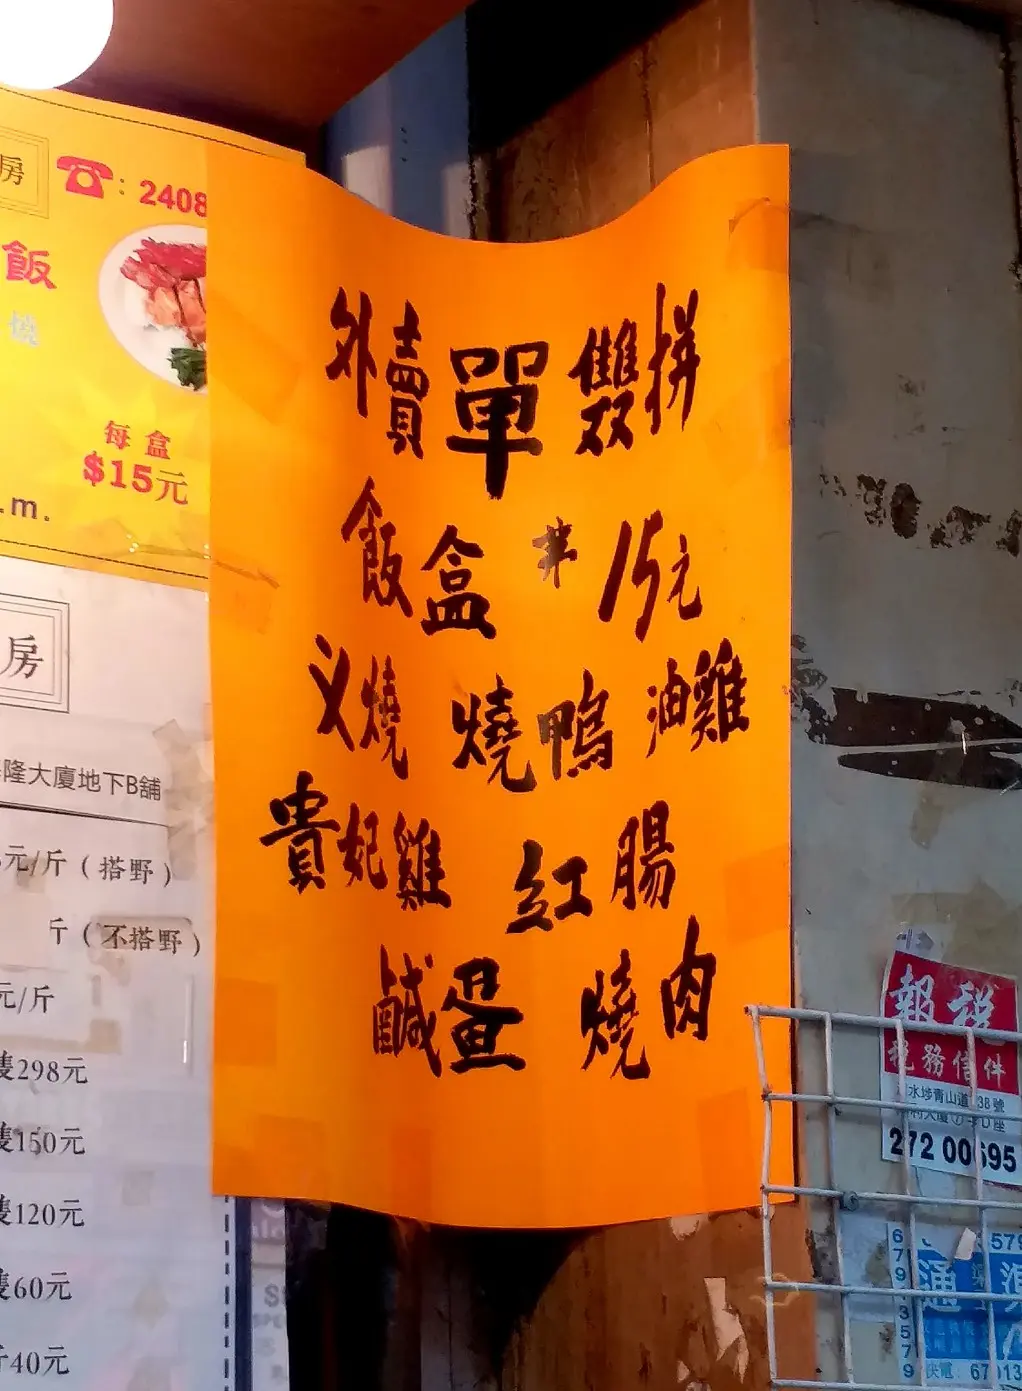 房
: 2408
飯
燒
每盒
$15元
.m.
外賣單雙拼
飯盒 # 15元
义燒 燒鴨 油雞
貴妃雞 紅腸
鹹蛋 燒肉
房
隆大廈地下B舖
元/斤(搭野)
斤(不搭野)
元/斤
298元
150元
120元
60元
40元
報稅
稅務信件
水埗青山道 38號
272 00695
通